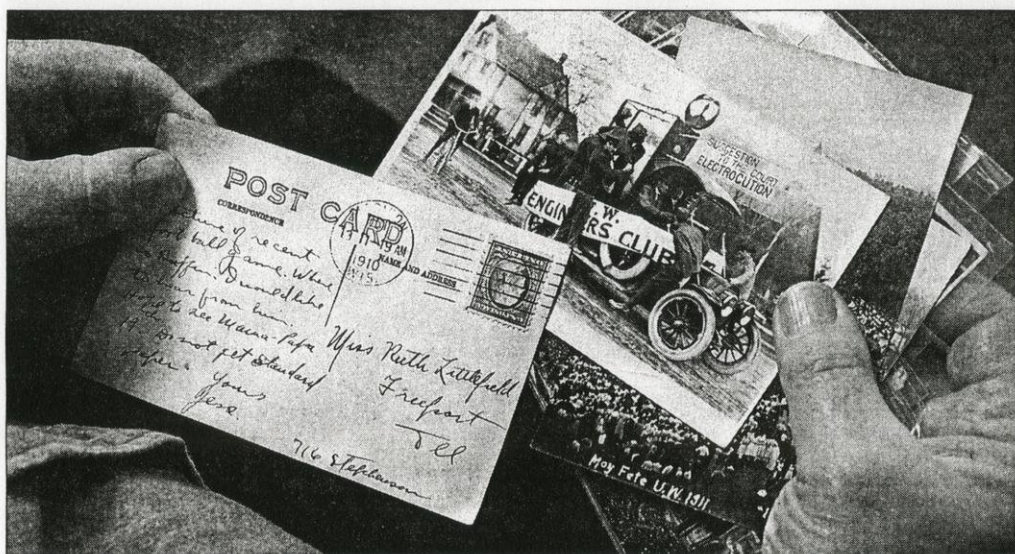 POST CARD
CORRESPONDENCE
NAME AND ADDRESS
1910
WIS.
of recent
ball game. Where
is Would like
to hear from him.
to see Mama Papa
Do not get Standard
paper.
Yours
Jess.
Miss Ruth Littlefield
Freeport
Ill
716 Stephenson
SUGGESTION
TO THE COURT
ELECTROCUTION
U.W.
ENGINEERS CLUB
May Fete U.W. 1911